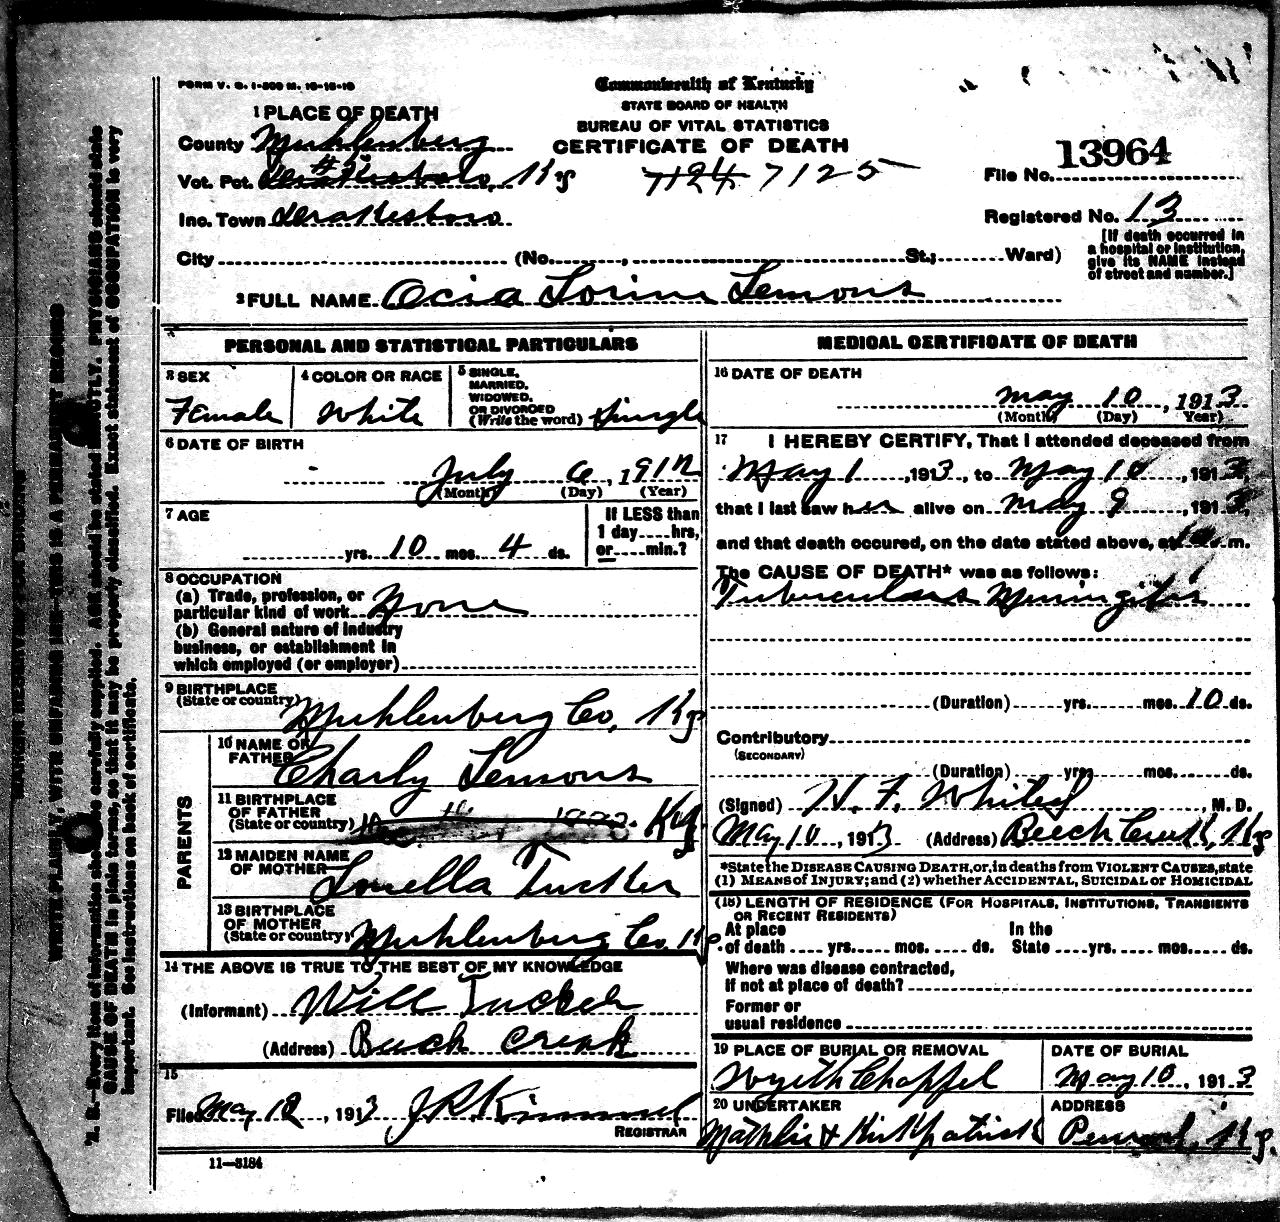 FORM V. S. 1-500 M. 10-15-10
Commonwealth of Kentucky
STATE BOARD OF HEALTH
BUREAU OF VITAL STATISTICS
CERTIFICATE OF DEATH
1 PLACE OF DEATH
County Muhlenberg
Vot. Pct. #5 Drakesboro, Ky
7124 7125
Inc. Town Drakesboro
City (No. , St.; Ward)
File No. 13964
Registered No. 13
[If death occurred in
a hospital or institution,
give its NAME instead
of street and number.]
2 FULL NAME Ocia Lorine Lemons
PERSONAL AND STATISTICAL PARTICULARS
3 SEX
Female
4 COLOR OR RACE
White
5 SINGLE,
MARRIED,
WIDOWED,
OR DIVORCED
(Write the word) Single
6 DATE OF BIRTH
July 6, 1912
(Month) (Day) (Year)
7 AGE
yrs. 10 mos. 4 ds.
If LESS than
1 day....hrs,
or....min.?
8 OCCUPATION
(a) Trade, profession, or
particular kind of work None
(b) General nature of industry
business, or establishment in
which employed (or employer)
9 BIRTHPLACE
(State or country) Muhlenberg Co, Ky
PARENTS
10 NAME OF
FATHER Charly Lemons
11 BIRTHPLACE
OF FATHER
(State or country) Ky.
12 MAIDEN NAME
OF MOTHER Louella Tucker
13 BIRTHPLACE
OF MOTHER
(State or country) Muhlenberg Co. Ky.
14 THE ABOVE IS TRUE TO THE BEST OF MY KNOWLEDGE
(Informant) Will Tucker
(Address) Beech Creek
15
Filed May 12, 1913 J R Kimmel
REGISTRAR
11—3184
MEDICAL CERTIFICATE OF DEATH
16 DATE OF DEATH
May 10, 1913
(Month) (Day) (Year)
17 I HEREBY CERTIFY, That I attended deceased from
May 1, 1913, to May 10, 1913,
that I last saw her alive on May 9, 1913,
and that death occured, on the date stated above, at m.
The CAUSE OF DEATH* was as follows:
Tuberculous Meningitis
(Duration) yrs. mos. 10 ds.
Contributory
(SECONDARY)
(Duration) yrs. mos. ds.
(Signed) H. F. , M. D.
May 10, 1913 (Address) Beech Creek, Ky
*State the DISEASE CAUSING DEATH, or, in deaths from VIOLENT CAUSES, state
(1) MEANS of INJURY; and (2) whether ACCIDENTAL, SUICIDAL or HOMICIDAL
(18) LENGTH OF RESIDENCE (FOR HOSPITALS, INSTITUTIONS, TRANSIENTS
OR RECENT RESIDENTS)
At place In the
of death .... yrs. .... mos. .... ds. State .... yrs. .... mos. .... ds.
Where was disease contracted,
If not at place of death?
Former or
usual residence
19 PLACE OF BURIAL OR REMOVAL
Chappel
DATE OF BURIAL
May 10, 1913
20 UNDERTAKER
& Kirkpatrick
ADDRESS
Penrod, Ky.
WRITE PLAINLY, WITH UNFADING INK—THIS IS A PERMANENT RECORD
N. B.—Every item of information should be carefully supplied. AGE should be stated EXACTLY. PHYSICIANS should state
CAUSE OF DEATH in plain terms, so that it may be properly classified. Exact statement of OCCUPATION is very
important. See instructions on back of certificate.
MARGIN RESERVED FOR BINDING